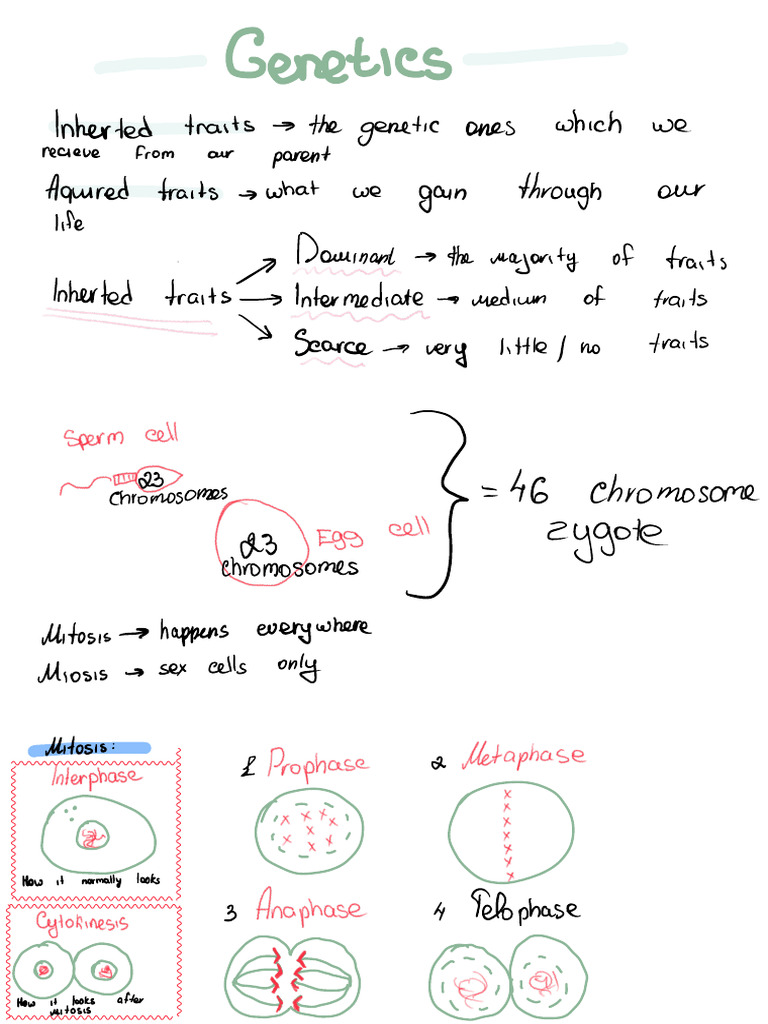 Genetics
Inherted traits → the genetic ones which we
recieve from our parent
Aquired traits → what we gain through our
life
Inherted traits
→ Dominant → the majority of traits
→ Intermediate → medium of traits
→ Scarce → very little / no traits
Sperm cell
23
chromosomes
23
chromosomes
Egg cell
= 46 chromosome
zygote
Mitosis → happens everywhere
Miosis → sex cells only
Mitosis:
Interphase
How it normally looks
1 Prophase
2 Metaphase
Cytokinesis
How it looks after
mitosis
3 Anaphase
4 Telophase